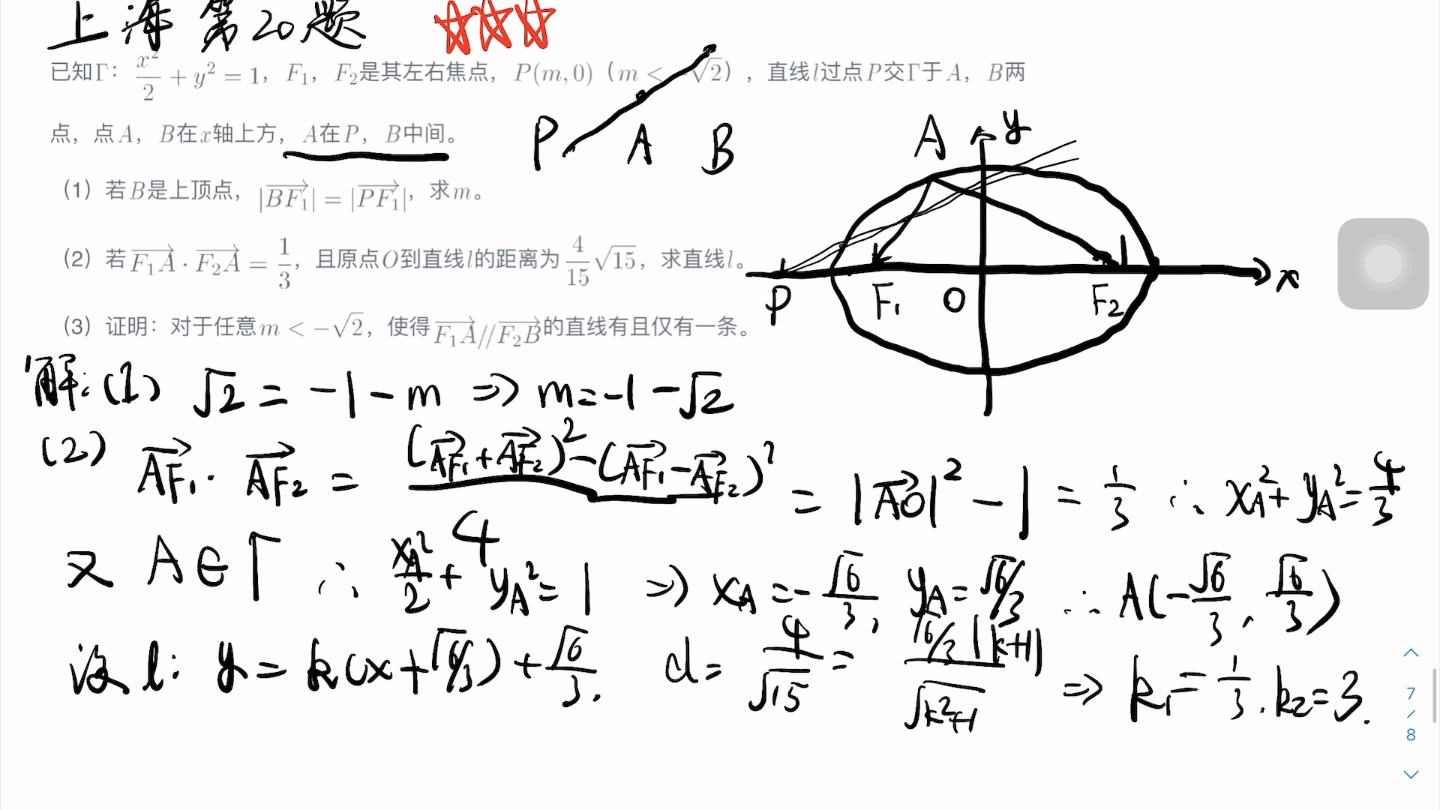 上海第20题 ☆☆☆
已知Γ：x²/2 + y² = 1，F₁，F₂是其左右焦点，P(m,0)（m < -√2），直线l过点P交Γ于A，B两
点，点A，B在x轴上方，A在P，B中间。
P A B
A y
（1）若B是上顶点，|BF₁→| = |PF₁→|，求m。
（2）若F₁A→ · F₂A→ = 1/3，且原点O到直线l的距离为4/15 √15，求直线l。
P F₁ O F₂ x
（3）证明：对于任意m < -√2，使得F₁A→ // F₂B→的直线有且仅有一条。
解：(1) √2 = -1 - m ⇒ m = -1 - √2
(2) AF₁→ · AF₂→ = ((AF₁→ + AF₂→)² - (AF₁→ - AF₂→)²)/4 = |AO→|² - 1 = 1/3 ∴ x_A² + y_A² = 4/3
又 A∈Γ ∴ x_A²/2 + y_A² = 1 ⇒ x_A = -√6/3, y_A = √6/3 ∴ A(-√6/3, √6/3)
设 l: y = k(x + √6/3) + √6/3. d = 4/√15 = √6/3 |k+1| / √(k²+1) ⇒ k₁ = 1/3. k₂ = 3.
7
/
8